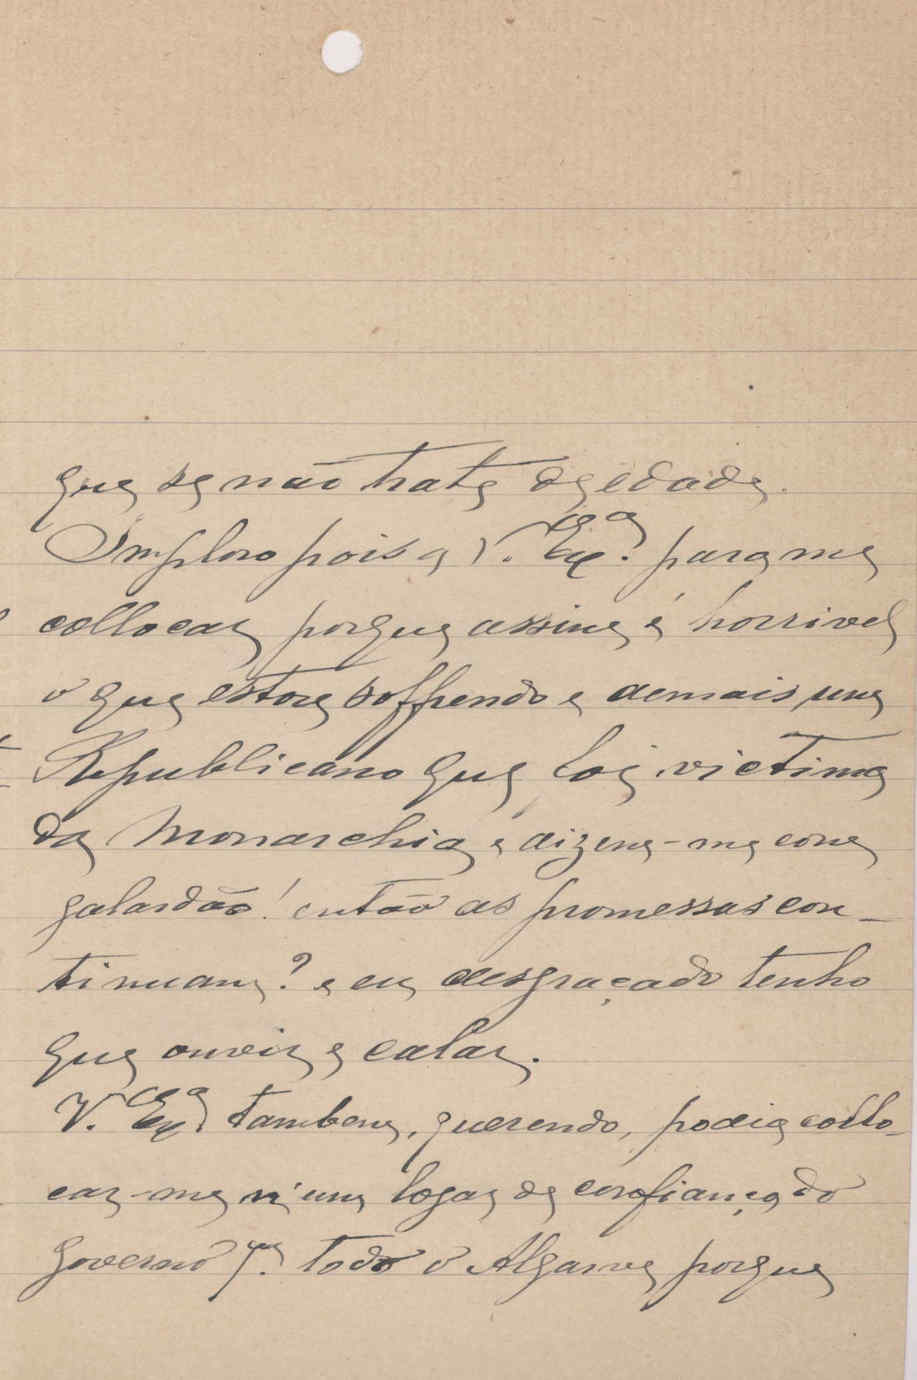 que se não trate de edade.
Imploro pois a V. Ex.cia para me
collocar porque assim é horrivel
o que estou soffrendo e demais um
Republicano que foi victima
da Monarchia e dizem-me com
galardão! então as promessas con-
tinuam? e eu desgraçado tenho
que ouvir e calar.
V. Ex.cia tambem, querendo, podia collo-
car-me n'um logar de confiança do
Governo p.a todo o Algarve porque